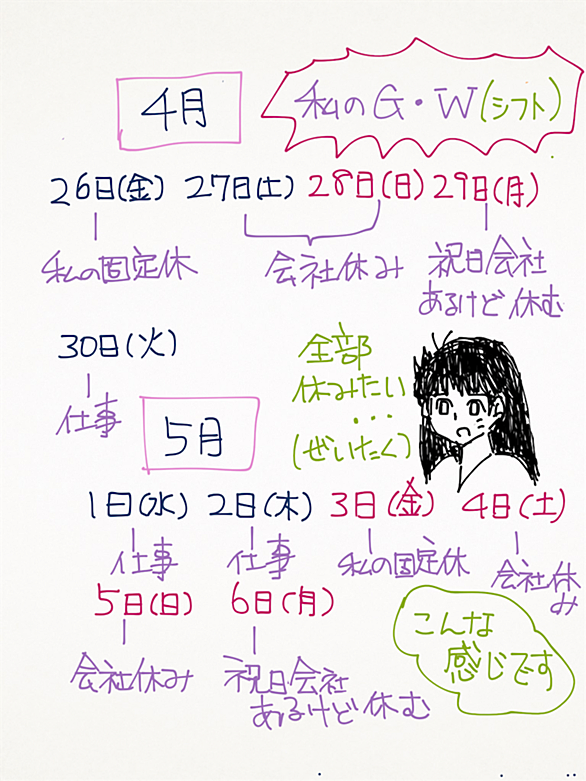 4月
私のG・W(シフト)
26日(金) 27日(土) 28日(日) 29日(月)
私の固定休
会社休み
祝日会社
あるけど休む
30日(火)
仕事
全部
休みたい
・・・
(ぜいたく)
5月
1日(水) 2日(木) 3日(金) 4日(土)
仕事
仕事
私の固定休
会社休
み
5日(日) 6日(月)
会社休み
祝日会社
あるけど休む
こんな
感じです